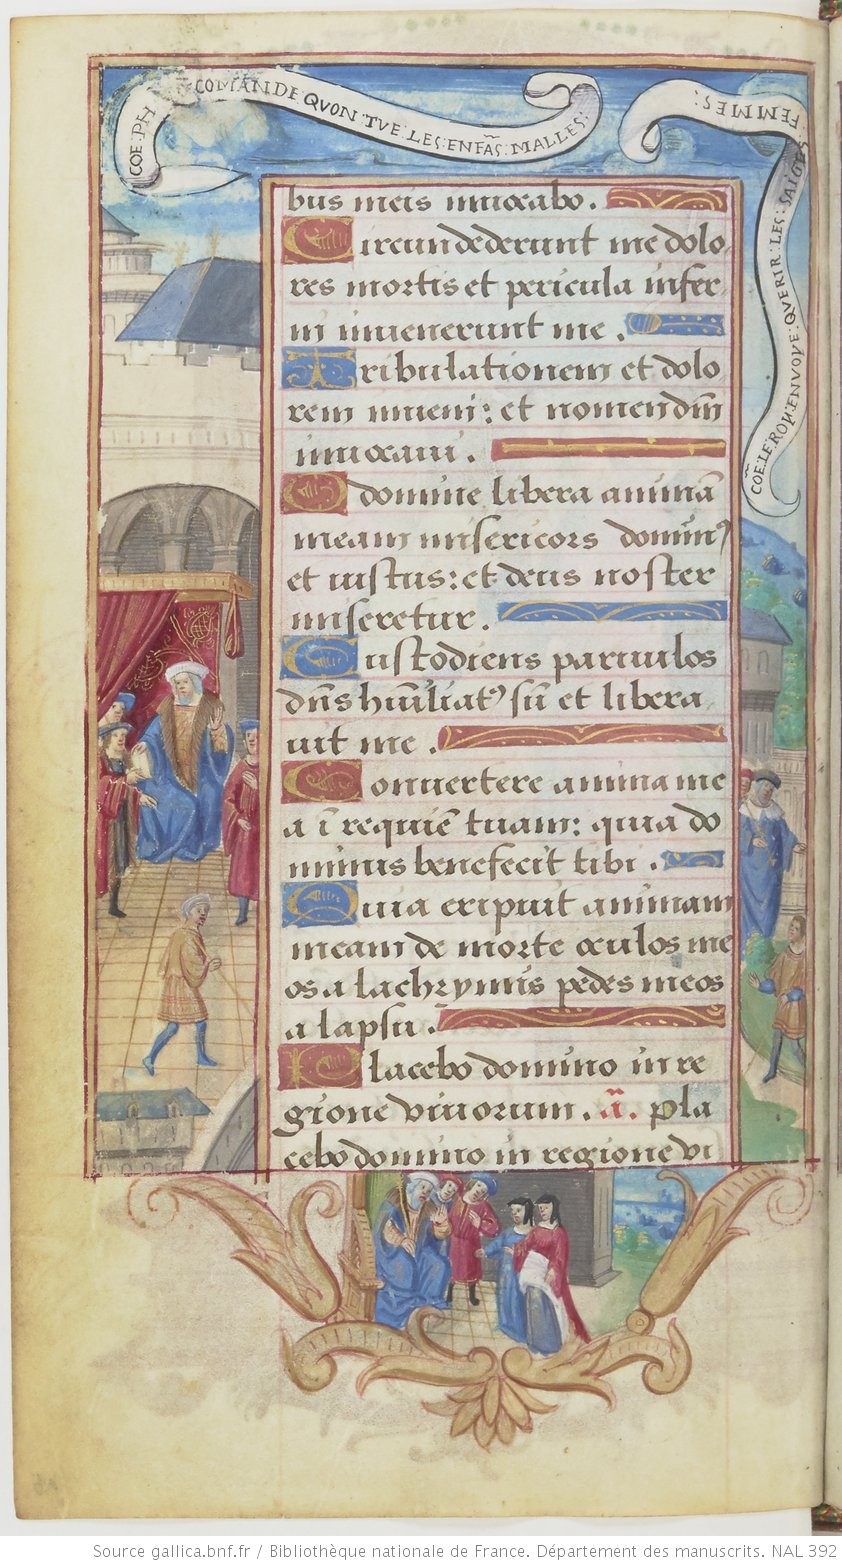 COE PH COMANDE QVON TVE LES ENFAS MALLES:
COE: LE ROY: ENVOYE: QVERIR: LES: SAIGES FEMMES:
bus meis inuocabo.
Circundederunt me dolo
res mortis et pericula infer
ni inuenerunt me.
Tribulationem et dolo
rem inueni: et nomen dñi
inuocaui.
O domine libera animã
meam misericors dominꝰ
et iustus: et deus noster
miseretur.
Custodiens paruulos
dñs hũiliatꝰ sũ et libera
uit me.
Conuertere anima me
a ĩ requiẽ tuam: quia do
minus benefecit tibi.
Quia eripuit animam
meam de morte oculos me
os a lachrymis pedes meos
a lapsu.
Placebo domino in re
gione viuorum. ã. Pla
cebo domino in regione vi
Source gallica.bnf.fr / Bibliothèque nationale de France. Département des manuscrits. NAL 392